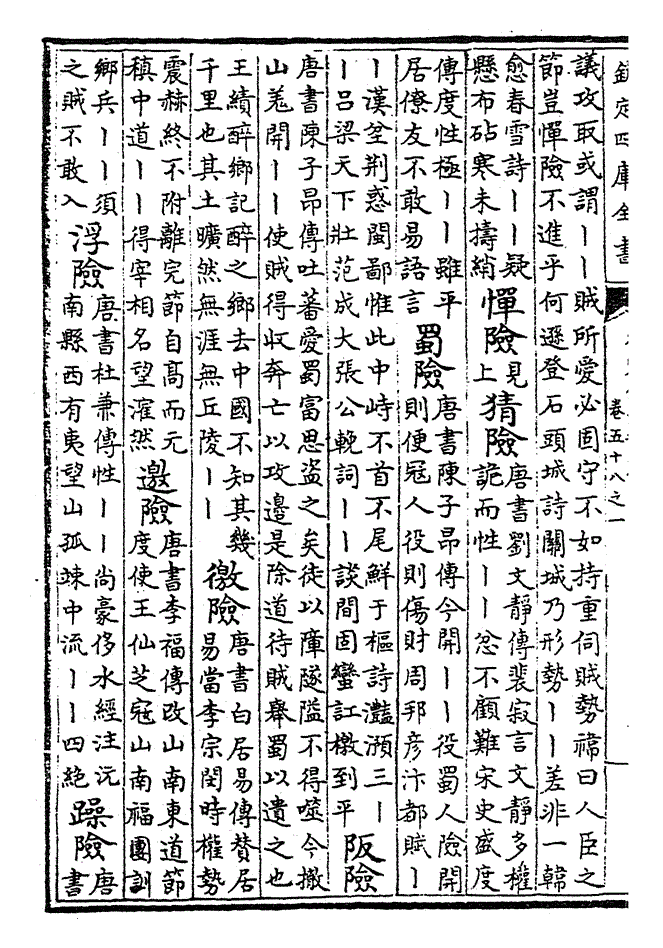 欽定四庫全書
卷五十八之一
議攻取或謂丨丨賊所愛必固守不如持重伺賊勢禕曰人臣之
節豈憚險不進乎何遜登石頭城詩關城乃形勢丨丨差非一韓
愈春雪詩丨丨疑
懸布砧寒未擣綃
憚險
見
上
猜險
唐書劉文靜傳裴寂言文靜多權
詭而性丨丨忿不顧難宋史盛度
傳度性極丨丨雖平
居僚友不敢易語言
蜀險
唐書陳子昂傳今開丨丨役蜀人險開
則便寇人役則傷財周邦彦汴都賦丨
丨漢筌荆惑閩鄙惟此中峙不首不尾鮮于樞詩灧澦三丨
丨呂梁天下壯范成大張公輓詞丨丨談間固蠻訌檄到平
阪險
唐書陳子昂傳吐蕃愛蜀富思盗之矣徒以障隧隘不得噬今撤
山羌開丨丨使賊得收奔亡以攻邊是除道待賊舉蜀以遺之也
王績醉鄉記醉之鄉去中國不知其幾
千里也其土曠然無涯無丘陵丨丨
徼險
唐書白居易傳賛居
易當李宗閔時權勢
震赫終不附離完節自髙而元
稹中道丨丨得宰相名望漼然
邀險
唐書李福傳改山南東道節
度使王仙芝寇山南福團訓
鄉兵丨丨須
之賊不敢入
浮險
唐書杜兼傳性丨丨尚豪侈水經注沅
南縣西有夷望山孤竦中流丨丨四絶
躁險
唐
書